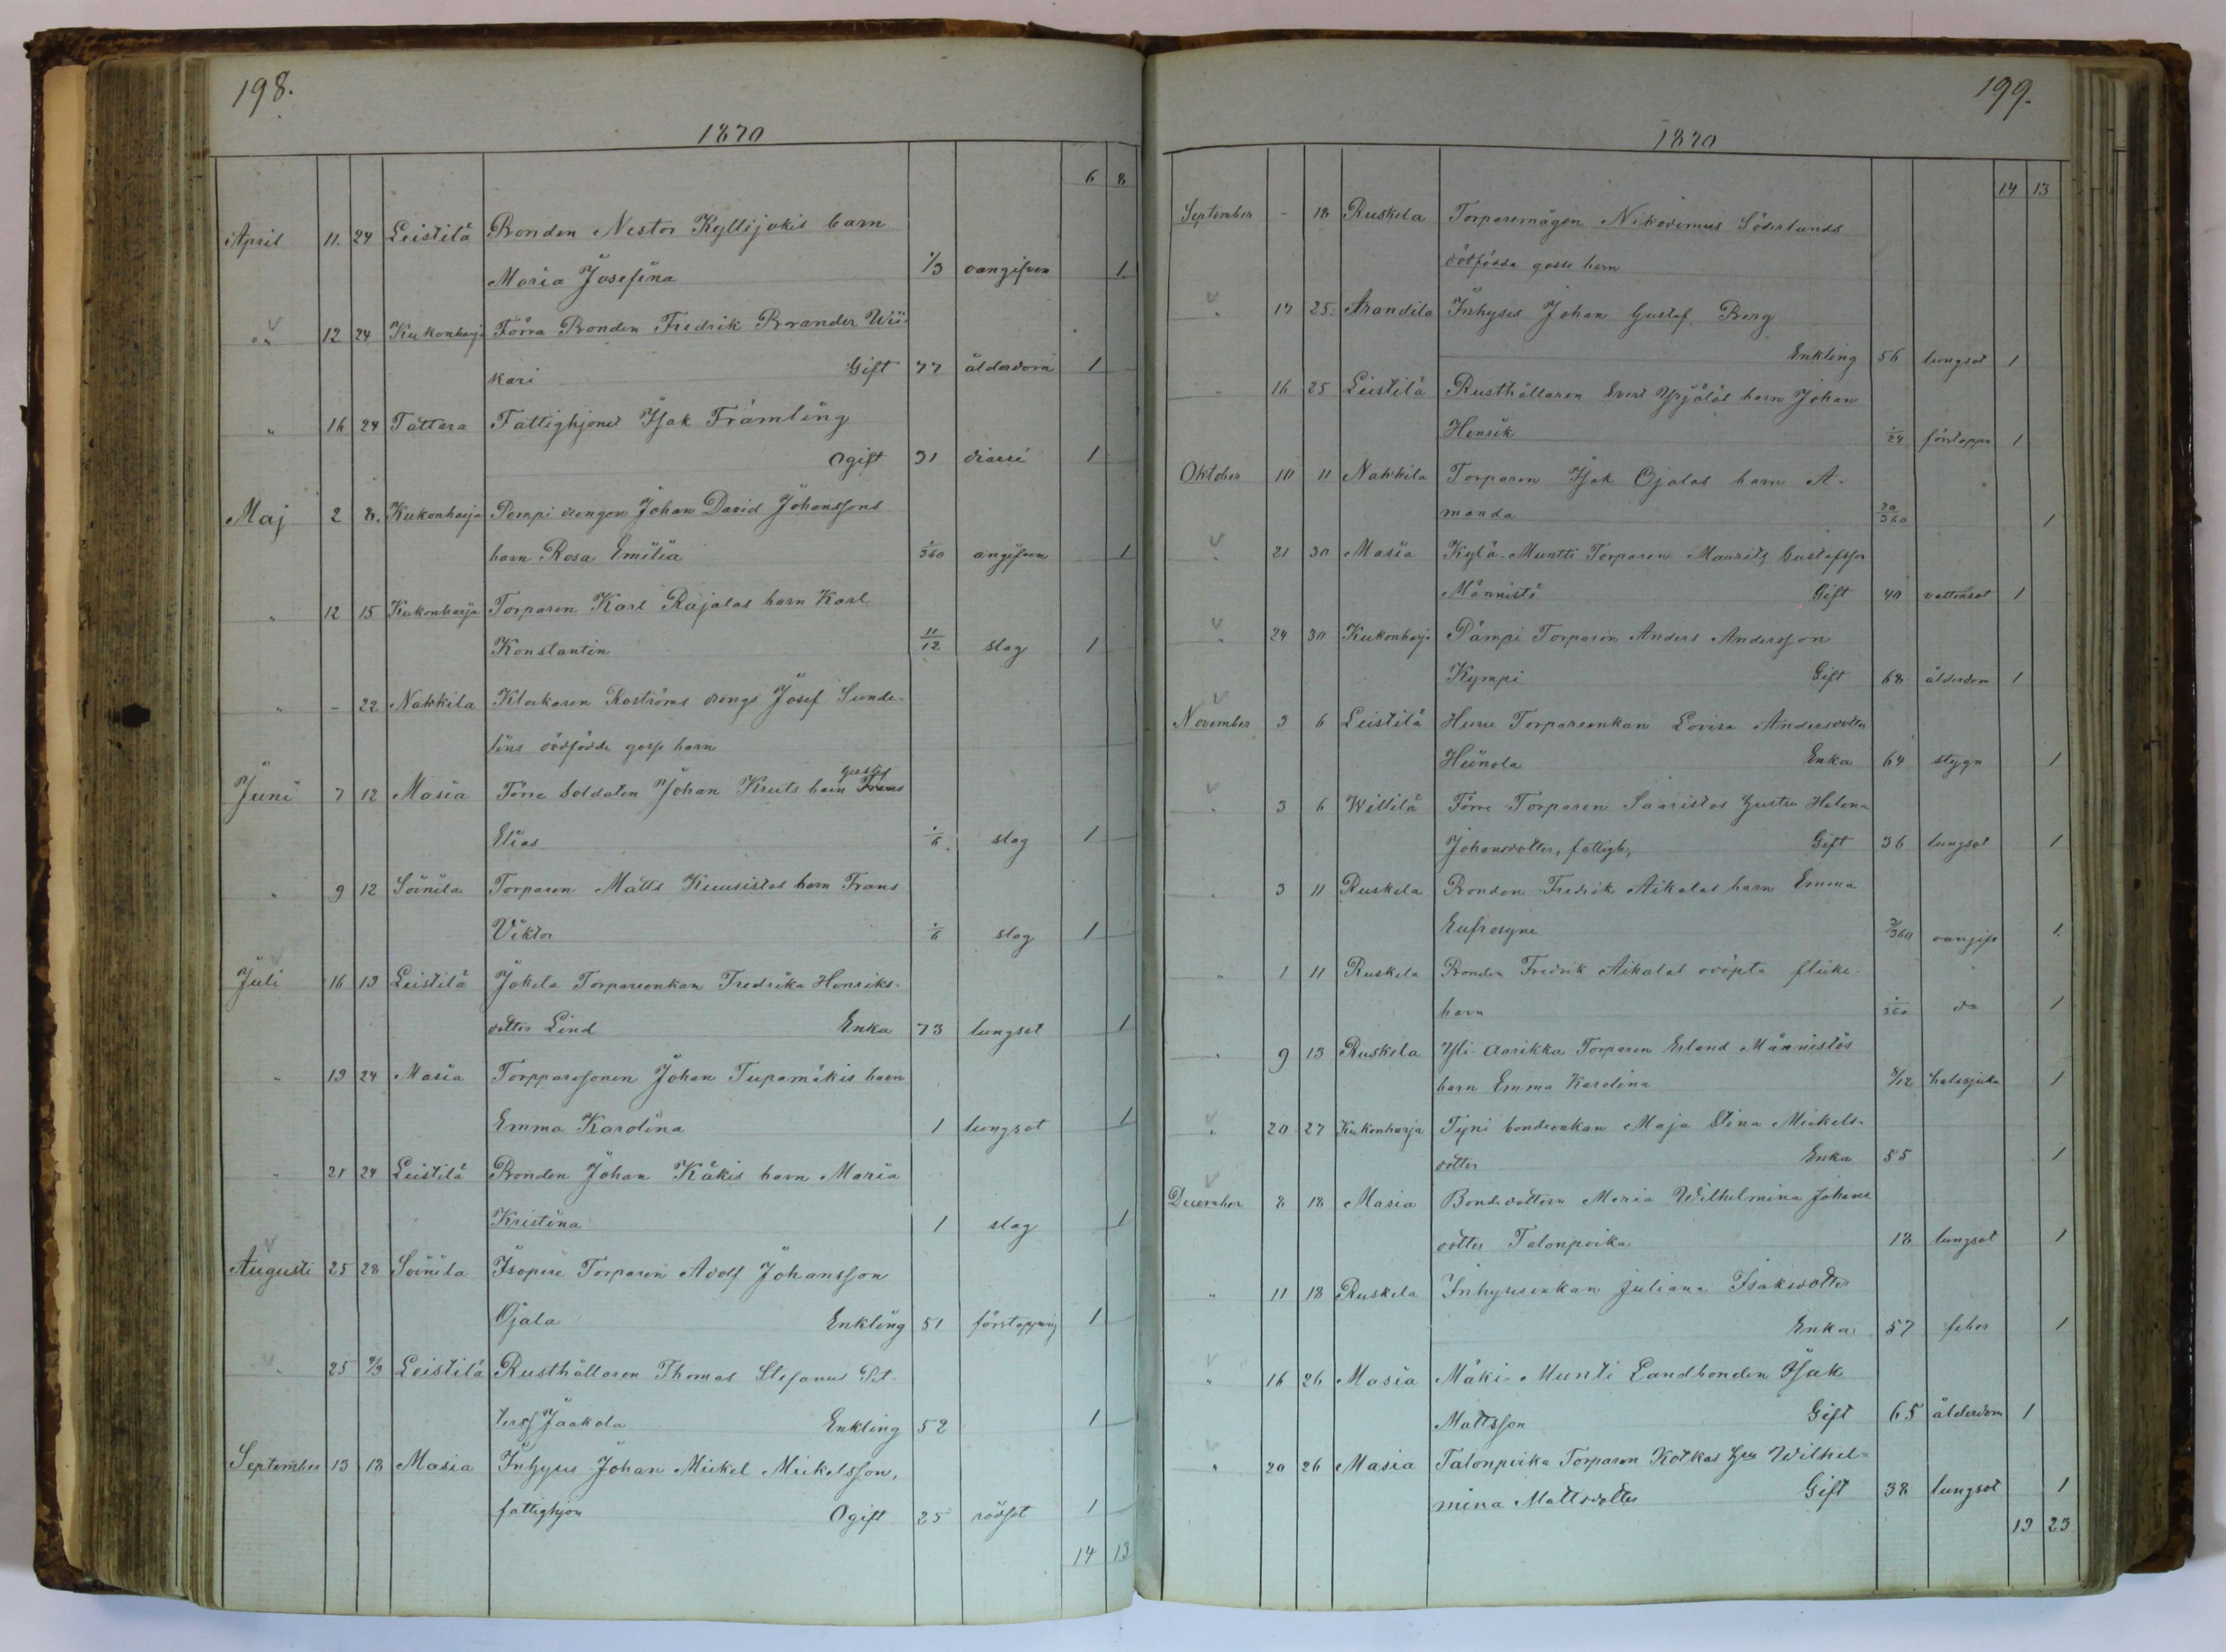 198.
1870
6 8
April 11. 24 Leistilä Bonden Nestor Kyllijokis barn
Maria Josefina 1/3 oangifven 1
" 12 24 Kukonharja Förra Bonden Fredrik Brander Wii-
kari Gift 77 ålderdom 1
" 16 24 Tattara Fattighjonet Isak Främling
Ogift 31 diarré 1
Maj 2 8. Kukonharja Pempi drengen Johan David Johanssons
barn Rosa Emilia 1/360 angifven 1
" 12 15 Kukonharja Torparen Karl Rajalas barn Karl
Konstantin 11/12 slag 1
" - 22 Nakkila Klockaren Roströms drengs Josef Sunde-
léns dödfödde gosse barn
Juni 7 12 Masia Förre Soldaten Johan Kruts barn Gustaf Frans
Elias 1/6 slag 1
" 9 12 Soinila Torparen Matts Kuusistos barn Frans
Viktor 1/6 slag 1
Juli 16 19 Leistilä Jakola Torpareenkan Fredrika Henriks-
dotter Lind Enka 73 lungsot 1
" 19 24 Masia Torpparesonen Johan Tupamäkis barn
Emma Karolina 1 lungsot 1
" 21 24 Leistilä Bonden Johan Käkis barn Maria
Kristina 1 slag 1
Augusti 25 28 Soinila Isopere Torparen Adolf Johansson
Ojala Enkling 51 förstoppning 1
" 25 4/9 Leistilä Rusthållaren Thomas Stefanus Pet-
terss Jaakola Enkling 52 1
September 13 18 Masia Inhyses Johan Mickel Mickelsson,
fattighjon Ogift 25 rödsot 1
14 13
199.
1870
14 13
September - 18 Ruskela Torparemågen Nikodemus Söderlunds
dödfödda gosse barn
" 17 25. Arandila Inhyses Johan Gustaf Berg
Enkling 56 lungsot 1
" 16 25 Leistilä Rusthållaren Evert Yrjäläs barn Johan
Henrik 1/24 förstoppn 1
Oktober 10 11 Nakkila Torparen Isak Ojalas barn A-
manda 20/360 1
" 21 30 Masia Kylä-Muntti Torparen Maurits Gustafsson
Männistö Gift 40 vattensot 1
" 24 30 Kukonharja Pämpi Torparen Anders Andersson
Kympi Gift 68 ålderdom 1
November 3 6 Leistilä Huru Torpareenkan Lovisa Andersdotter
Heinola Enka 64 stygn 1
" 3 6 Willilä Förre Torparen Saaristos hustru Helena
Johansdotter, fattigh, Gift 36 lungsot 1
" 3 11 Ruskela Bonden Fredrik Aikalas barn Emma
Eufrosyne 3/360 oangif 1
" 1 11 Ruskela Bonden Fredrik Aikalas odöpta flicke
barn 1/360 do 1
" 9 13 Ruskela Yli-Aarikka Torparen Erland Männistös
barn Emma Karolina 8/12 halssjuka 1
" 20 27 Kukonharja Tyni bondeenkan Maja Stina Mickels-
dotter Enka 55 1
December 8 18 Masia Bondedottern Maria Wilhelmina Johans
dotter Talonpoika 18 lungsot 1
" 11 18 Ruskela Inhysesenkan Juliana Isaksdotter
Enka 57 feber 1
" 16 26 Masia Mäki-Munti Landbonden Isak
Mattsson Gift 65 ålderdom 1
" 20 26 Masia Talonpoika Torparen Kotkas hru Wilhel=
mina Mattsdotter Gift 38 lungsot 1
19 23